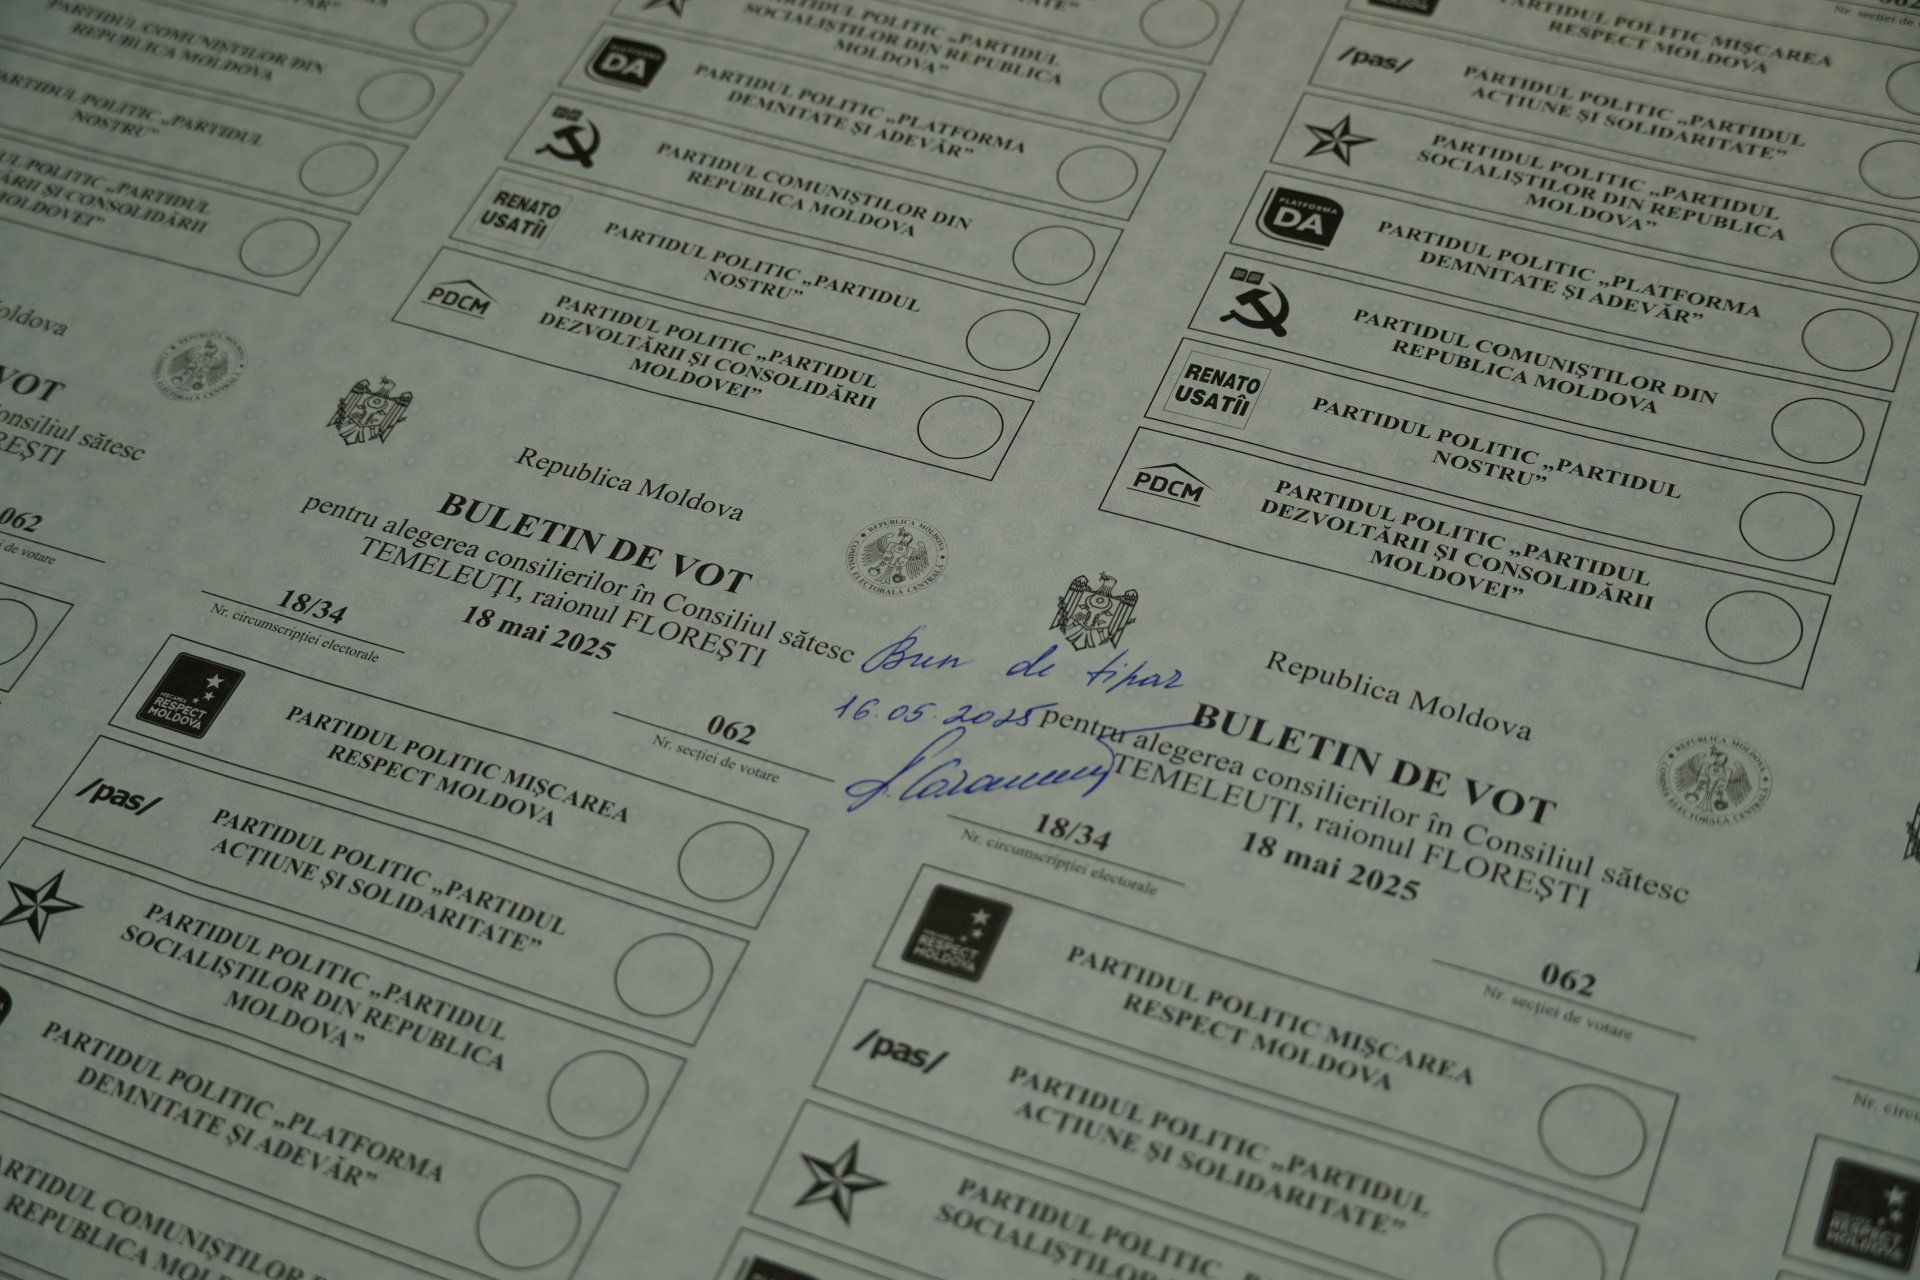 PARTIDUL COMUNIȘTILOR DIN
REPUBLICA MOLDOVA
PARTIDUL POLITIC „PARTIDUL
NOSTRU”
POLITIC „PARTIDUL
ȘI CONSOLIDĂRII
MOLDOVEI”
PARTIDUL POLITIC „PARTIDUL
SOCIALIȘTILOR DIN REPUBLICA
MOLDOVA”
PLATFORMA
DA
PARTIDUL POLITIC „PLATFORMA
DEMNITATE ȘI ADEVĂR”
PARTIDUL COMUNIȘTILOR DIN
REPUBLICA MOLDOVA
RENATO
USATÎI
PARTIDUL POLITIC „PARTIDUL
NOSTRU”
PDCM
PARTIDUL POLITIC „PARTIDUL
DEZVOLTĂRII ȘI CONSOLIDĂRII
MOLDOVEI”
062
Nr. secției de
PARTIDUL POLITIC MIȘCAREA
RESPECT MOLDOVA
/pas/
PARTIDUL POLITIC „PARTIDUL
ACȚIUNE ȘI SOLIDARITATE”
PARTIDUL POLITIC „PARTIDUL
SOCIALIȘTILOR DIN REPUBLICA
MOLDOVA”
PLATFORMA
DA
PARTIDUL POLITIC „PLATFORMA
DEMNITATE ȘI ADEVĂR”
PARTIDUL COMUNIȘTILOR DIN
REPUBLICA MOLDOVA
RENATO
USATÎI
PARTIDUL POLITIC „PARTIDUL
NOSTRU”
PDCM
PARTIDUL POLITIC „PARTIDUL
DEZVOLTĂRII ȘI CONSOLIDĂRII
MOLDOVEI”
Moldova
VOT
Consiliul sătesc
062
de votare
Republica Moldova
BULETIN DE VOT
pentru alegerea consilierilor în Consiliul sătesc
TEMELEUȚI, raionul FLOREȘTI
18 mai 2025
REPUBLICA MOLDOVA
COMISIA ELECTORALĂ CENTRALĂ
18/34
Nr. circumscripției electorale
062
Nr. secției de votare
MIȘCAREA
RESPECT
MOLDOVA
PARTIDUL POLITIC MIȘCAREA
RESPECT MOLDOVA
/pas/
PARTIDUL POLITIC „PARTIDUL
ACȚIUNE ȘI SOLIDARITATE”
PARTIDUL POLITIC „PARTIDUL
SOCIALIȘTILOR DIN REPUBLICA
MOLDOVA”
PARTIDUL POLITIC „PLATFORMA
DEMNITATE ȘI ADEVĂR”
PARTIDUL COMUNIȘTILOR
REPUBLICA MOLDOVA
Bun de tipar
16.05.2025
Republica Moldova
BULETIN DE VOT
pentru alegerea consilierilor în Consiliul sătesc
TEMELEUȚI, raionul FLOREȘTI
18 mai 2025
REPUBLICA MOLDOVA
COMISIA ELECTORALĂ CENTRALĂ
18/34
Nr. circumscripției electorale
062
Nr. secției de votare
RESPECT
MOLDOVA
PARTIDUL POLITIC MIȘCAREA
RESPECT MOLDOVA
/pas/
PARTIDUL POLITIC „PARTIDUL
ACȚIUNE ȘI SOLIDARITATE”
PARTIDUL POLITIC „PARTIDUL
SOCIALIȘTILOR DIN REPUBLICA
RESPECT
MOLDOVA